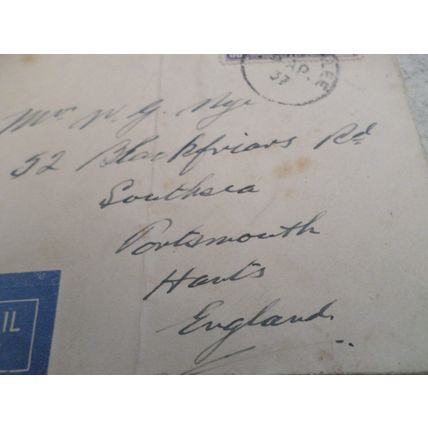 LEE
AP
37
Mrs W. G. Nye
52 Blackfriars Rd
Southsea
Portsmouth
Hants
England
AIL